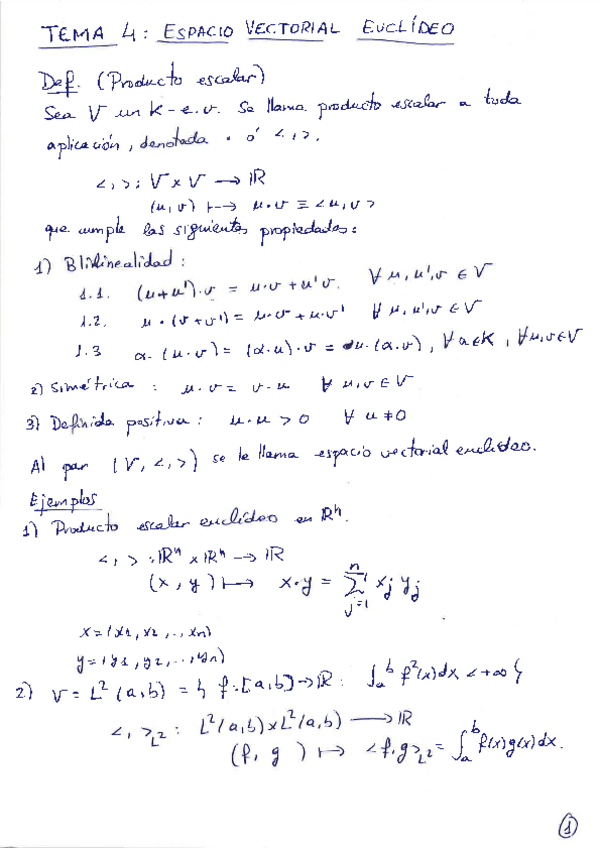 TEMA 4: ESPACIO VECTORIAL EUCLÍDEO
Def. (Producto escalar)
Sea V un K-e.v. Se llama producto escalar a toda
aplicación, denotada · ó <,>,
<,>: V x V → ℝ
(u,v) ↦ u·v ≡ <u,v>
que cumple las siguientes propiedades:
1) Bilinealidad:
1.1. (u+u')·v = u·v + u'v. ∀ u,u',v ∈ V
1.2. u·(v+v') = u·v + u·v' ∀ u,u',v ∈ V
1.3 α·(u·v) = (α·u)·v = u·(α·v), ∀ α∈K, ∀u,v∈V
2) Simétrica: u·v = v·u ∀ u,v ∈ V
3) Definida positiva: u·u > 0 ∀ u ≠ 0
Al par (V, <,>) se le llama espacio vectorial euclídeo.
Ejemplos
1) Producto escalar euclídeo en ℝⁿ.
<,>: ℝⁿ x ℝⁿ → ℝ
(x, y) ↦ x·y = ∑_{j=1}^{n} x_j y_j
x = (x1, x2, .., xn)
y = (y1, y2, .., yn)
2) V = L²(a,b) = { f: [a,b] → ℝ : ∫_a^b f²(x)dx < +∞ }
<,>_{L²} : L²(a,b) x L²(a,b) → ℝ
(f, g) ↦ <f,g>_{L²} = ∫_a^b f(x)g(x)dx.
1